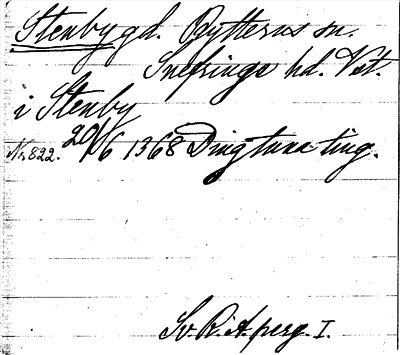 Stenby gd. Rytterns sn.
Snefringe hd. Vst.
i Stenby
No 822. 20/6 1368 Dingtuna ting.
Sv. R. A. perg. I.